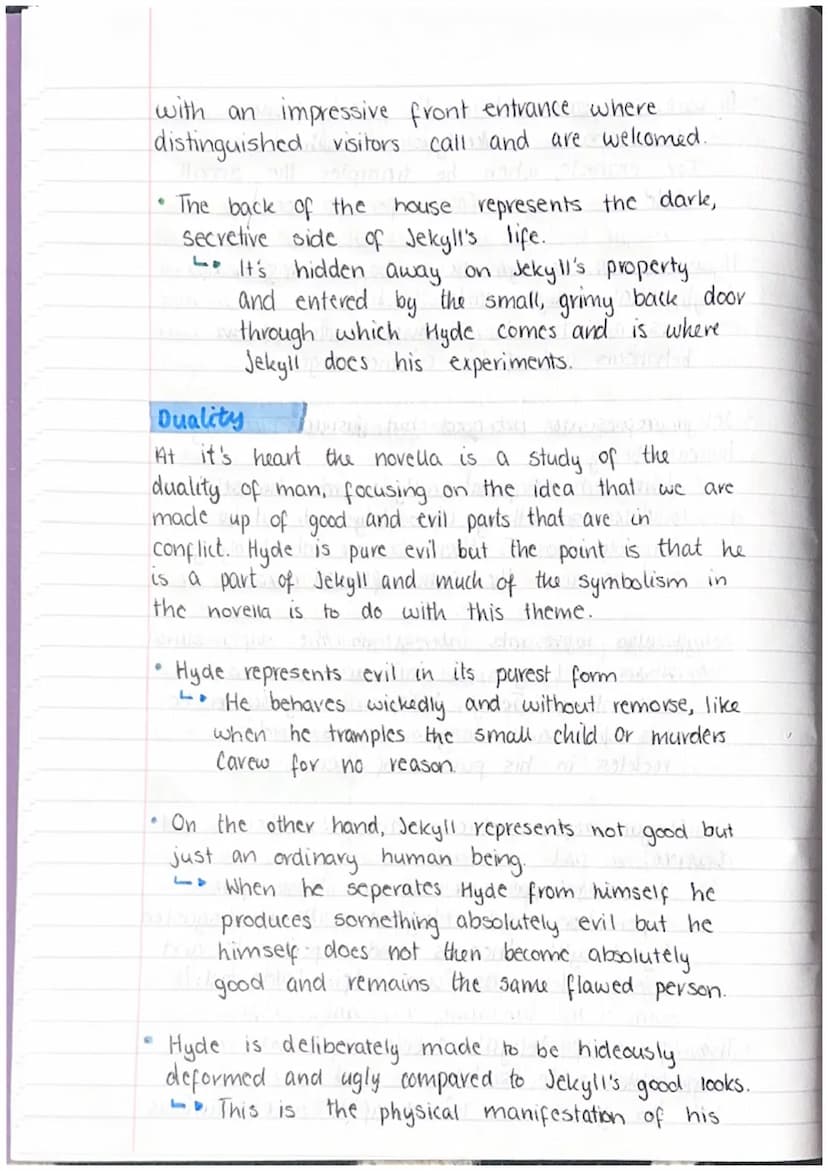 with an impressive front entrance where
distinguished visitors call and are welcomed.
• The back of the house represents the dark,
secretive side of Jekyll's life.
↳ It's hidden away on Jekyll's property
and entered by the small, grimy back door
through which Hyde comes and is where
Jekyll does his experiments.
Duality
At it's heart the novella is a study of the
duality of man, focusing on the idea that we are
made up of good and evil parts that are in
conflict. Hyde is pure evil but the point is that he
is a part of Jekyll and much of the symbolism in
the novella is to do with this theme.
• Hyde represents evil in its purest form
↳ He behaves wickedly and without remorse, like
when he tramples the small child or murders
Carew for no reason.
• On the other hand, Jekyll represents not good but
just an ordinary human being.
↳ When he seperates Hyde from himself he
produces something absolutely evil but he
himself does not then become absolutely
good and remains the same flawed person.
• Hyde is deliberately made to be hideously
deformed and ugly compared to Jekyll's good looks.
↳ This is the physical manifestation of his